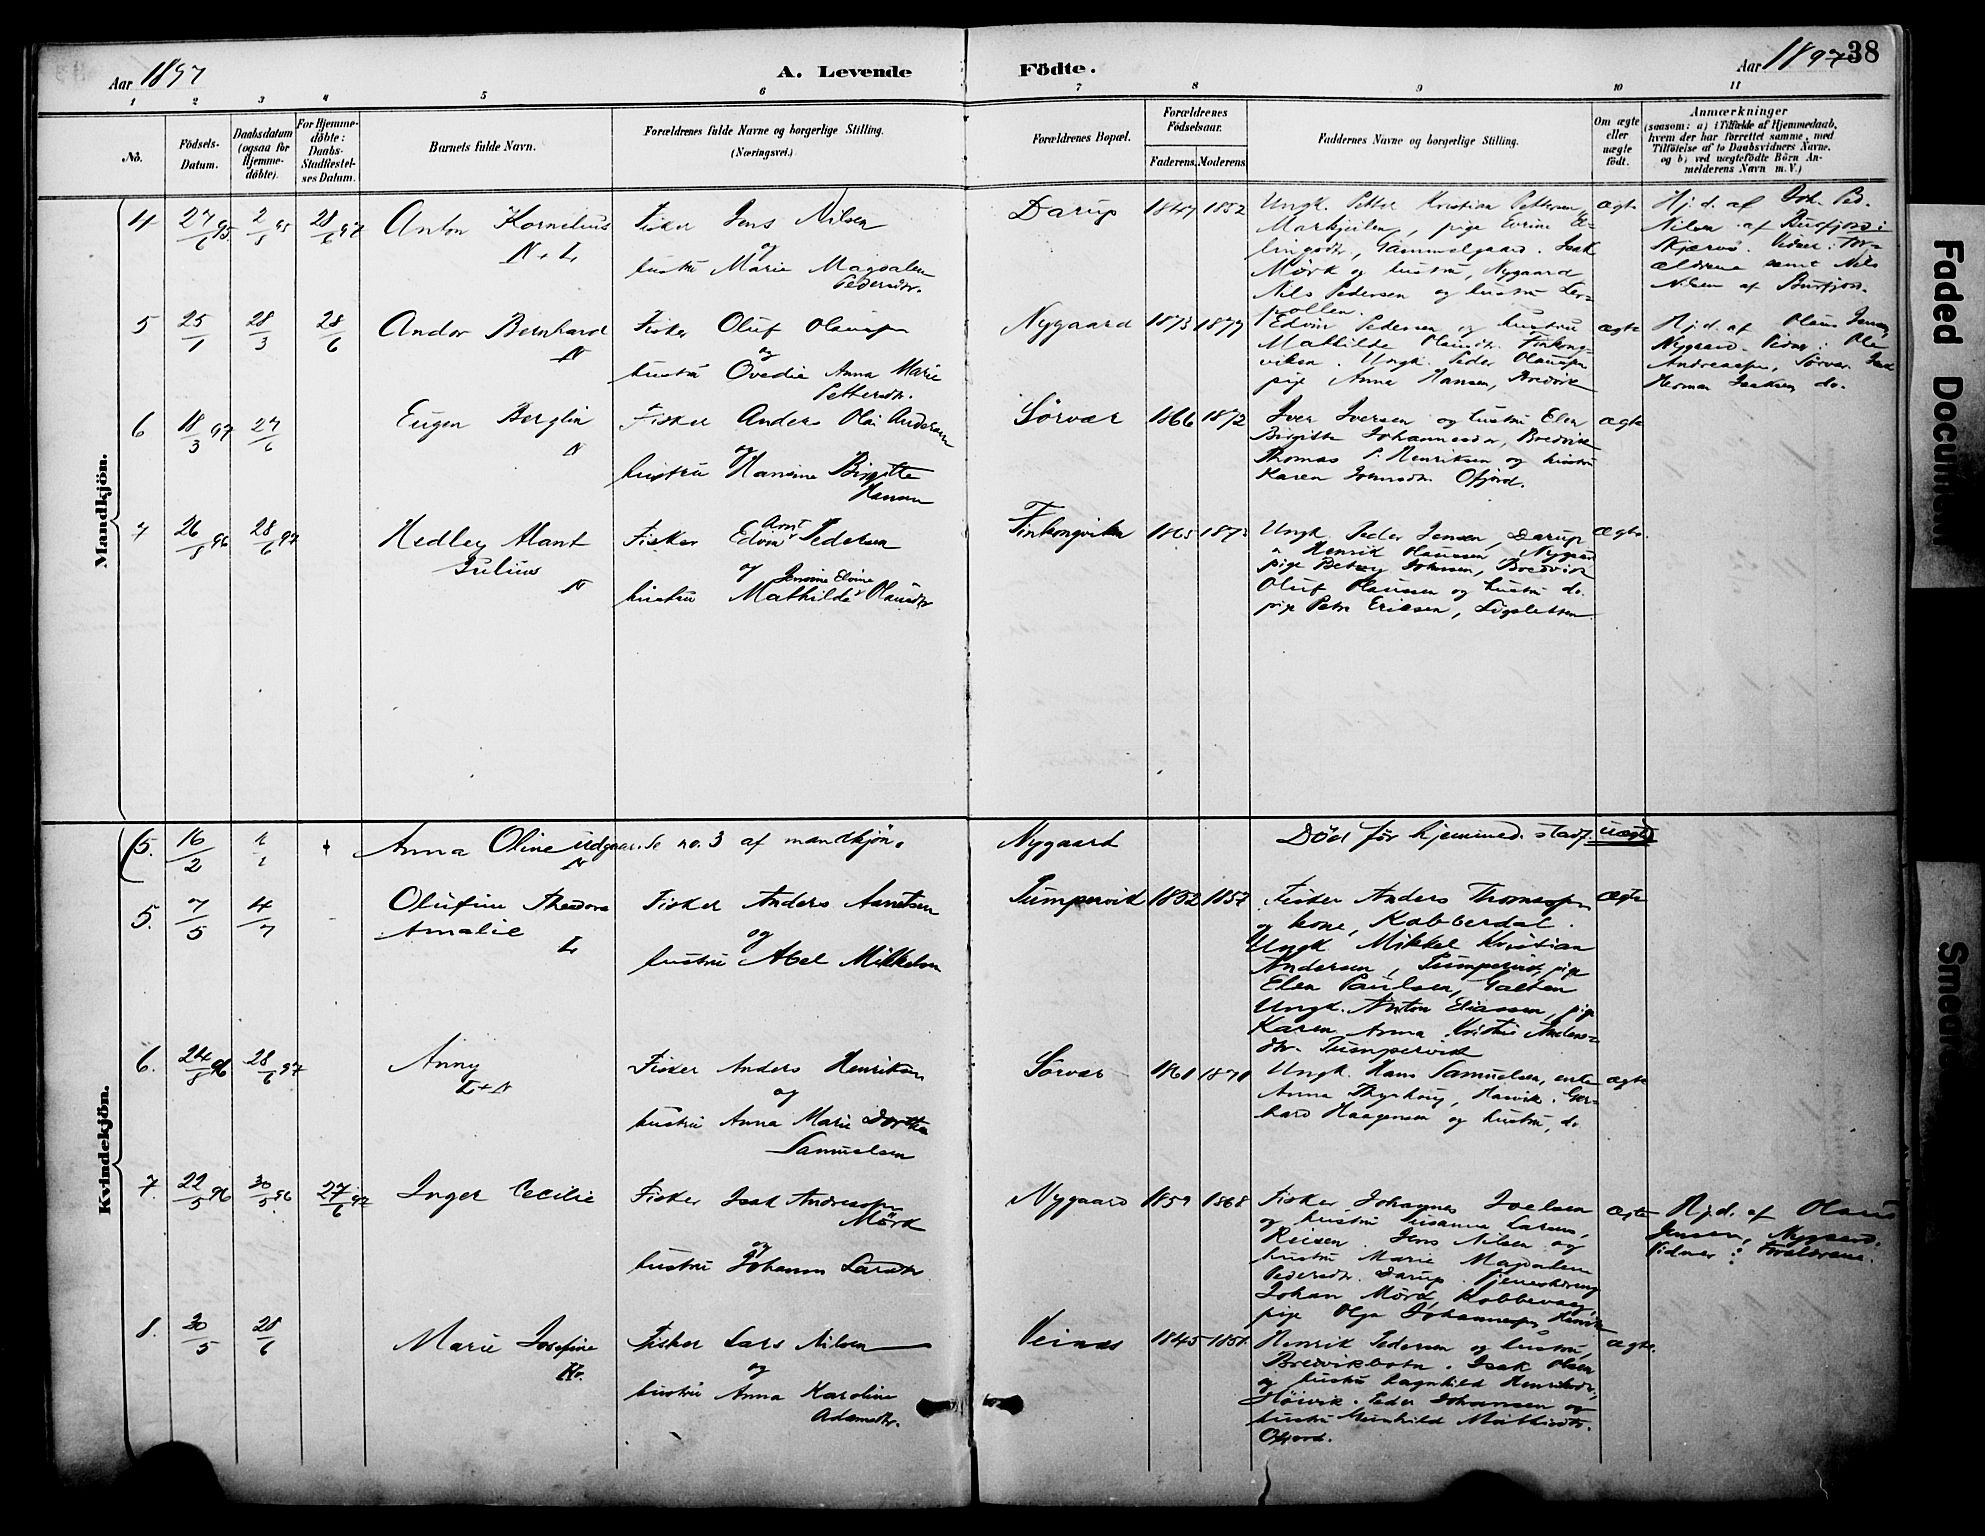 Aar 1897
A. Levende
Födte.
Aar 1897
38
1 2 3 4 5 6 7 8 9 10 11
No.
Födsels-
Datum.
Daabsdatum
(ogsaa for
Hjemme-
döbte).
For Hjemme-
döbte:
Daabs-
Stadfæstel-
ses Datum.
Barnets fulde Navn.
Forældrenes fulde Navne og borgerlige Stilling.
(Næringsvei.)
Forældrenes Bopæl.
Forældrenes
Födselsaar.
Faderens. Moderens.
Faddernes Navne og borgerlige Stilling.
Om ægte
eller
uægte
født.
Anmærkninger
(saasom: a) i Tilfælde af Hjemmedaab,
hvem der har forrettet samme, med
Tilföielse af to Daabsvidners Navne,
og b) ved uægtefödte Börn An-
melderens Navn m. V.)
Mandkjön.
4
27/6 95
28/6 97
Anton Kornelius
N + L
Fisker Jens Nilsen
og
hustru Marie Magdalen
Pedersdtr.
Darup
1847 1852
Ungk. Petter Kristian Pettersen
Markeilen, pige Evrine El-
lingsdtr, Gammelgaard. Isak
Mörk og hustru, Nygaard
Nils Pedersen og hustru Ler-
pollen.
ægte
Hj.d. af Joh. Ped.
Nilsen af Burfjord i
Skjærvö. Vidner: For-
ældrene samt Nils
Nilsen af Burfjord.
5
25/1
28/3
28/6
Andor Bernhard
N
Fisker Oluf Olausen
og
hustru Ovedie Anna Marie
Pettersdtr.
Nygaard
1873 1879
Edvin Pedersen og hustru
Mathilde Olausdtr. Finkong-
viken. Ungk. Peder Olausen
pige Anna Hansen, Bredvik
ægte
Hj.d. af Olaus Jensen,
Nygaard. Vidner: Ole
Andreassen, Sørvær Isak
Herman Isaksen do.
6
18/3 97
27/6
Eugen Berglin
N
Fisker Anders Olai Andersen
og
hustru Hansine Birgitte
Hansen
Sørvær
1866 1872
Iver Iversen og hustru Elen
Birgitte Johannesdtr, Bredvik
Thomas P. Henriksen og hustru
Karen Ivarsdtr. Ofjord.
ægte
7
26/8 96
28/6 97
Hedley Alant
Julius
N
Fisker Edvin Arnt Pedersen
og
hustru Mathilde Jensine Elvine Olausdtr
Finkongviken
1865 1873
Ungk Peder Jensen, Darup
" Henrik Olaussen Nygaard
pige Betsy Johnsen, Bredvik
Oluf Olaussen og hustru do.
pige Petra Eriksen, Lögsletten
Ægte.
Kvindekjön.
(5.
16/2
Anna Oline udgaar. Se no. 3 af mandkjön.
N
Nygaard
Död før hjemmed. stadf.
uægte)
5.
7/5
4/7
Olufine Theodora
Amalie
L
Fisker Anders Arnetsen
og
hustru Abel Mikkelsen
Tumpervik
1852 1857
Fisker Anders Thomassen
og kone, Kobberdal.
Ungk Mikkel Kristian
Andersen, Tumpervik, pige
Elen Paulsen, Galten
Ungk. Anton Eliassen, pige
Karen Anna Kristine Anders-
dtr. Tumpervik
ægte
6.
24/8 96
28/6 97
Anny
L + N
Fisker Anders Henriksen
og
hustru Anna Marie Dorthea
Samuelsen
Sørvær
1861 1871
Ungk. Hans Samuelsen, enke
Anna Thyrhaug, Hasvik. Ger-
hard Haagensen og hustru, do
ægte
7.
22/5 96
30/5 96
27/6 97
Inger Cecilie
Fisker Isak Andreassen
Mörk
og
hustru Johanna Larsdtr
Nygaard
1859 1868
Fisker Johannes Joelsen
og hustru Susanna Larsen,
Reisen. Jens Nilsen og
hustru Marie Magdalen
Pedersdtr. Darup. Tjenestedreng
Johan Mörk, Kobbevaag,
pige Olga Johannessen, Hasvik
ægte
Hj.d. af Olaus
Jensen, Nygaard.
Vidner: Forældrene.
8.
30/5
28/6
Marie Josefine
Kv.
Fisker Lars Nilsen
og
hustru Anna Karoline
Adamsdtr.
Veines
1845 1851
Henrik Pedersen og hustru,
Bredvikbotn. Isak Olsen
og hustru Ragnhild Henriksdtr,
Höivik. Peder Johansen og
hustru Gunhild Mathisdtr.
Ofjord.
ægte.
Faded Document
Smeared